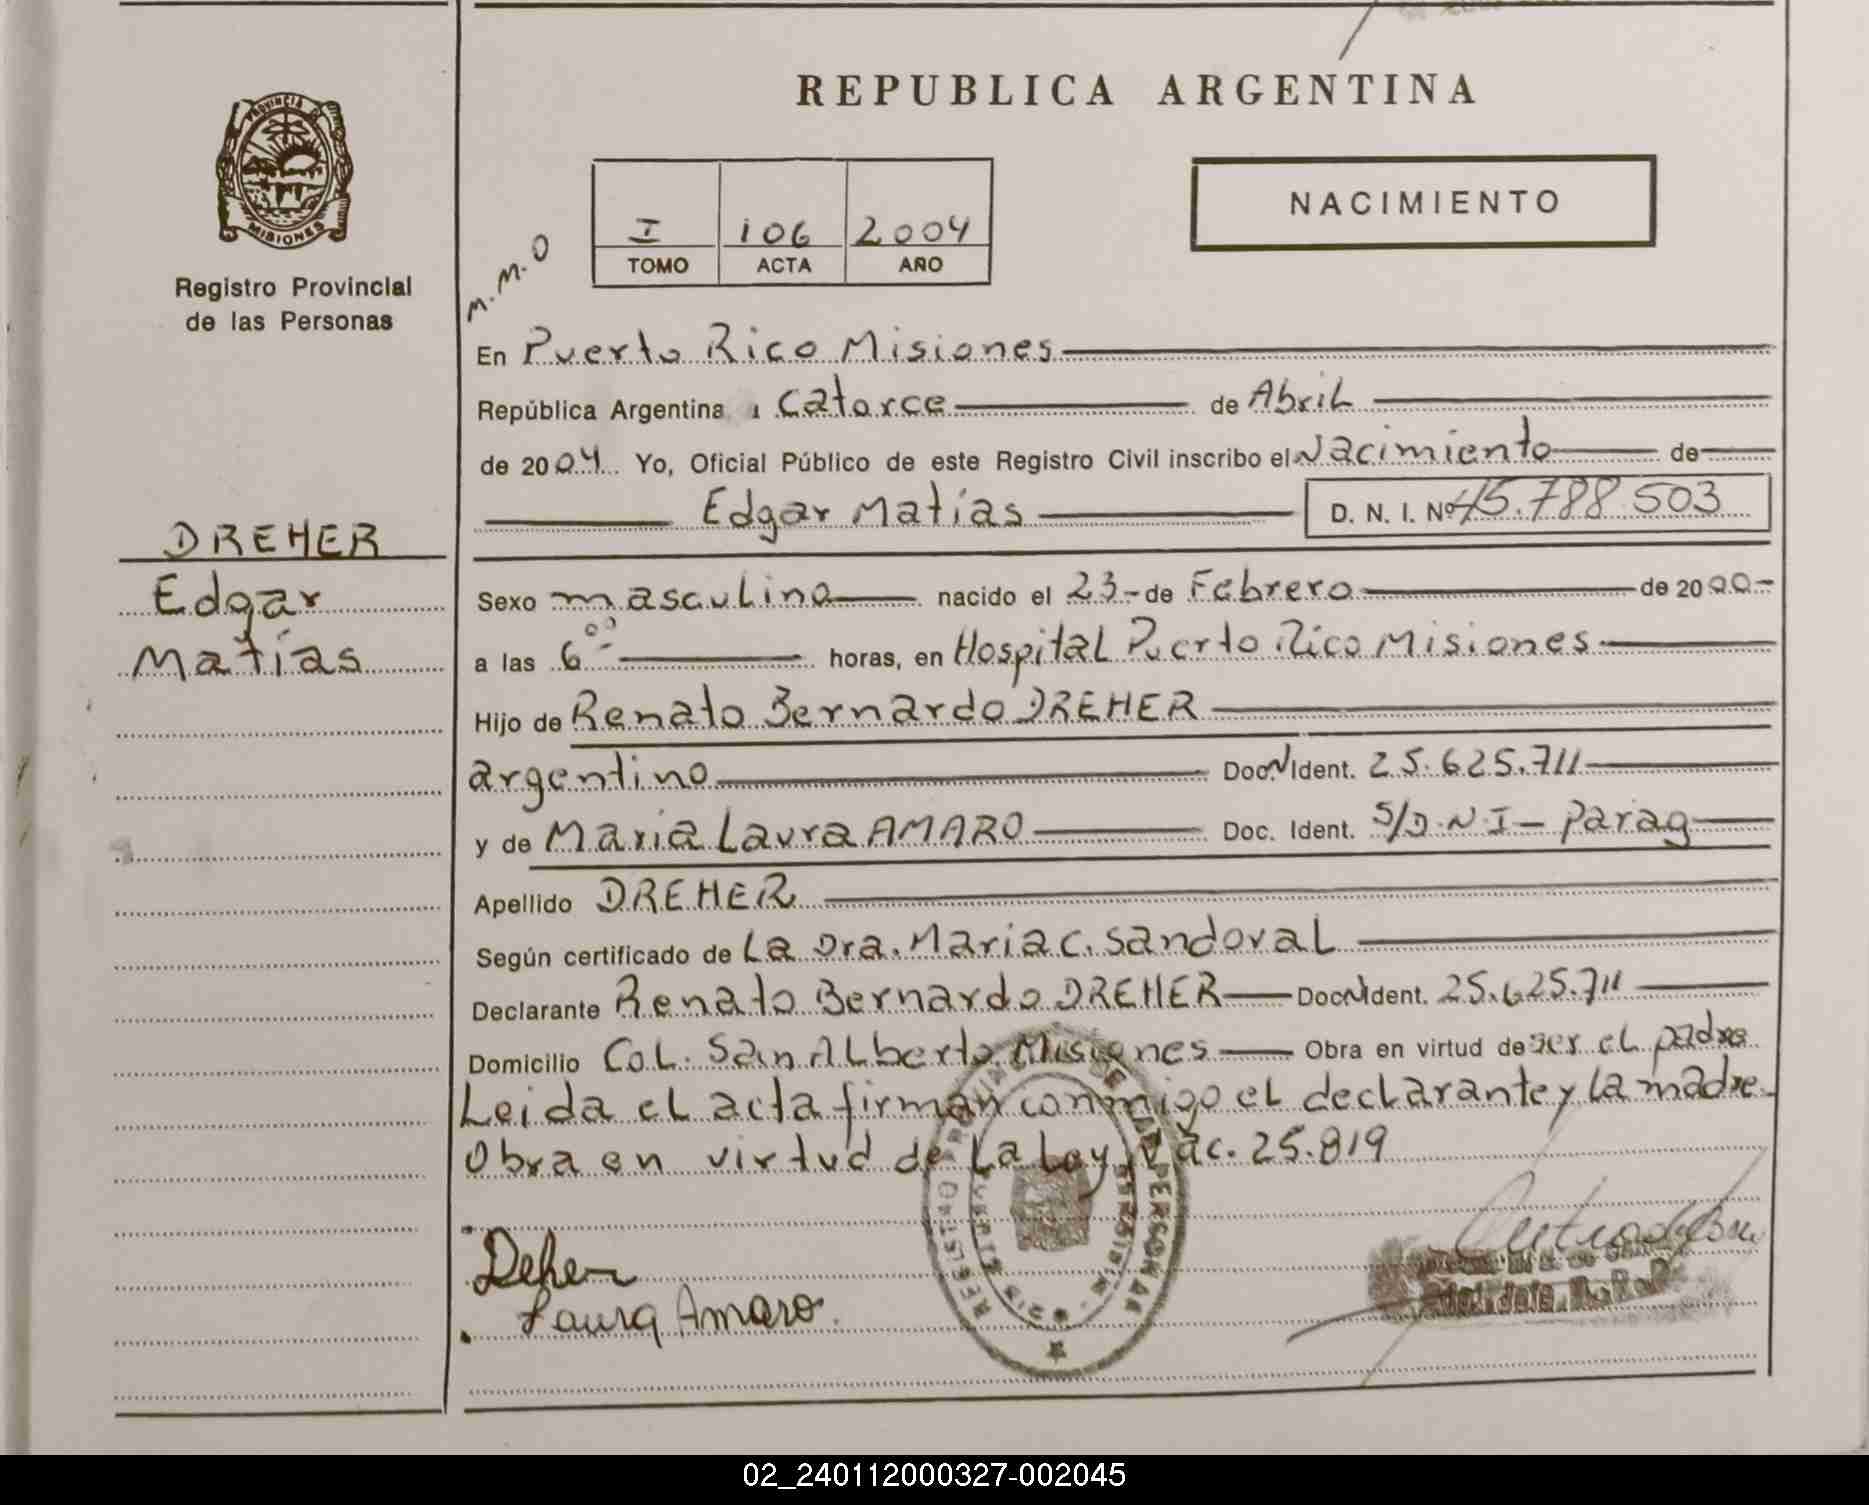 REPUBLICA ARGENTINA
PROVINCIA
MISIONES
Registro Provincial
de las Personas
NACIMIENTO
I 106 2004
TOMO ACTA AÑO
M.M.O
En Puerto Rico Misiones
República Argentina a catorce de Abril
de 2004 Yo, Oficial Público de este Registro Civil inscribo el Nacimiento de
Edgar Matías D. N. I. Nº 45.788.503
DREHER
Edgar
Matías
Sexo masculino nacido el 23 de Febrero de 2000
a las 6 00 horas, en Hospital Puerto Rico Misiones
Hijo de Renato Bernardo DREHER
argentino Doc. N Ident. 25.625.711
y de Maria Laura AMARO Doc. Ident. S/D.N.I - Parag
Apellido DREHER
Según certificado de La Dra. Maria C. Sandoval
Declarante Renato Bernardo DREHER Doc. N Ident. 25.625.711
Domicilio Col. San Alberto Misiones Obra en virtud de ser el padre
Leida el acta firman conmigo el declarante y la madre
Obra en virtud de La Ley Nac. 25.819
REGISTRO PROVINCIAL DE LAS PERSONAS
Dreher
Laura Amaro
02_240112000327-002045